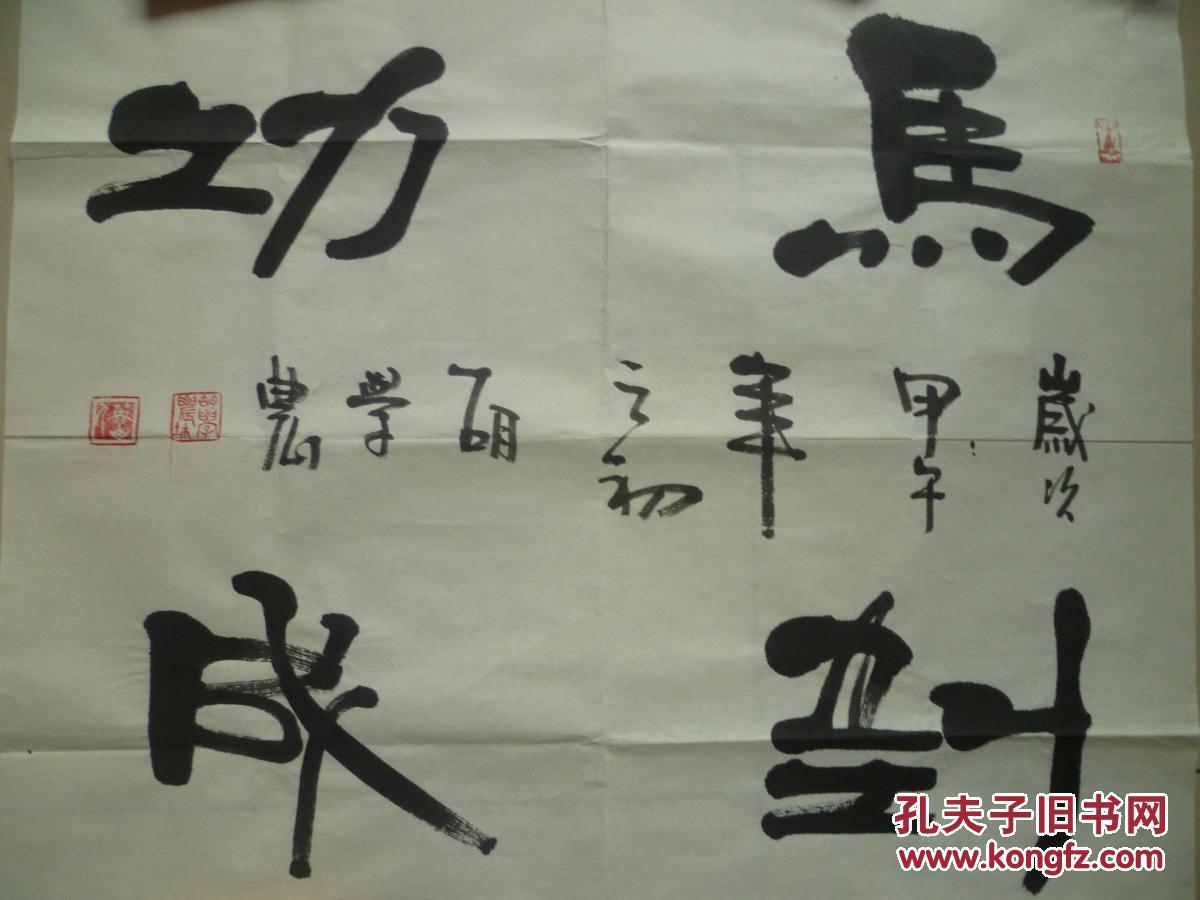 馬到
功成
歲次
甲午
年
之初
胡
学
農
孔夫子旧书网
www.kongfz.com